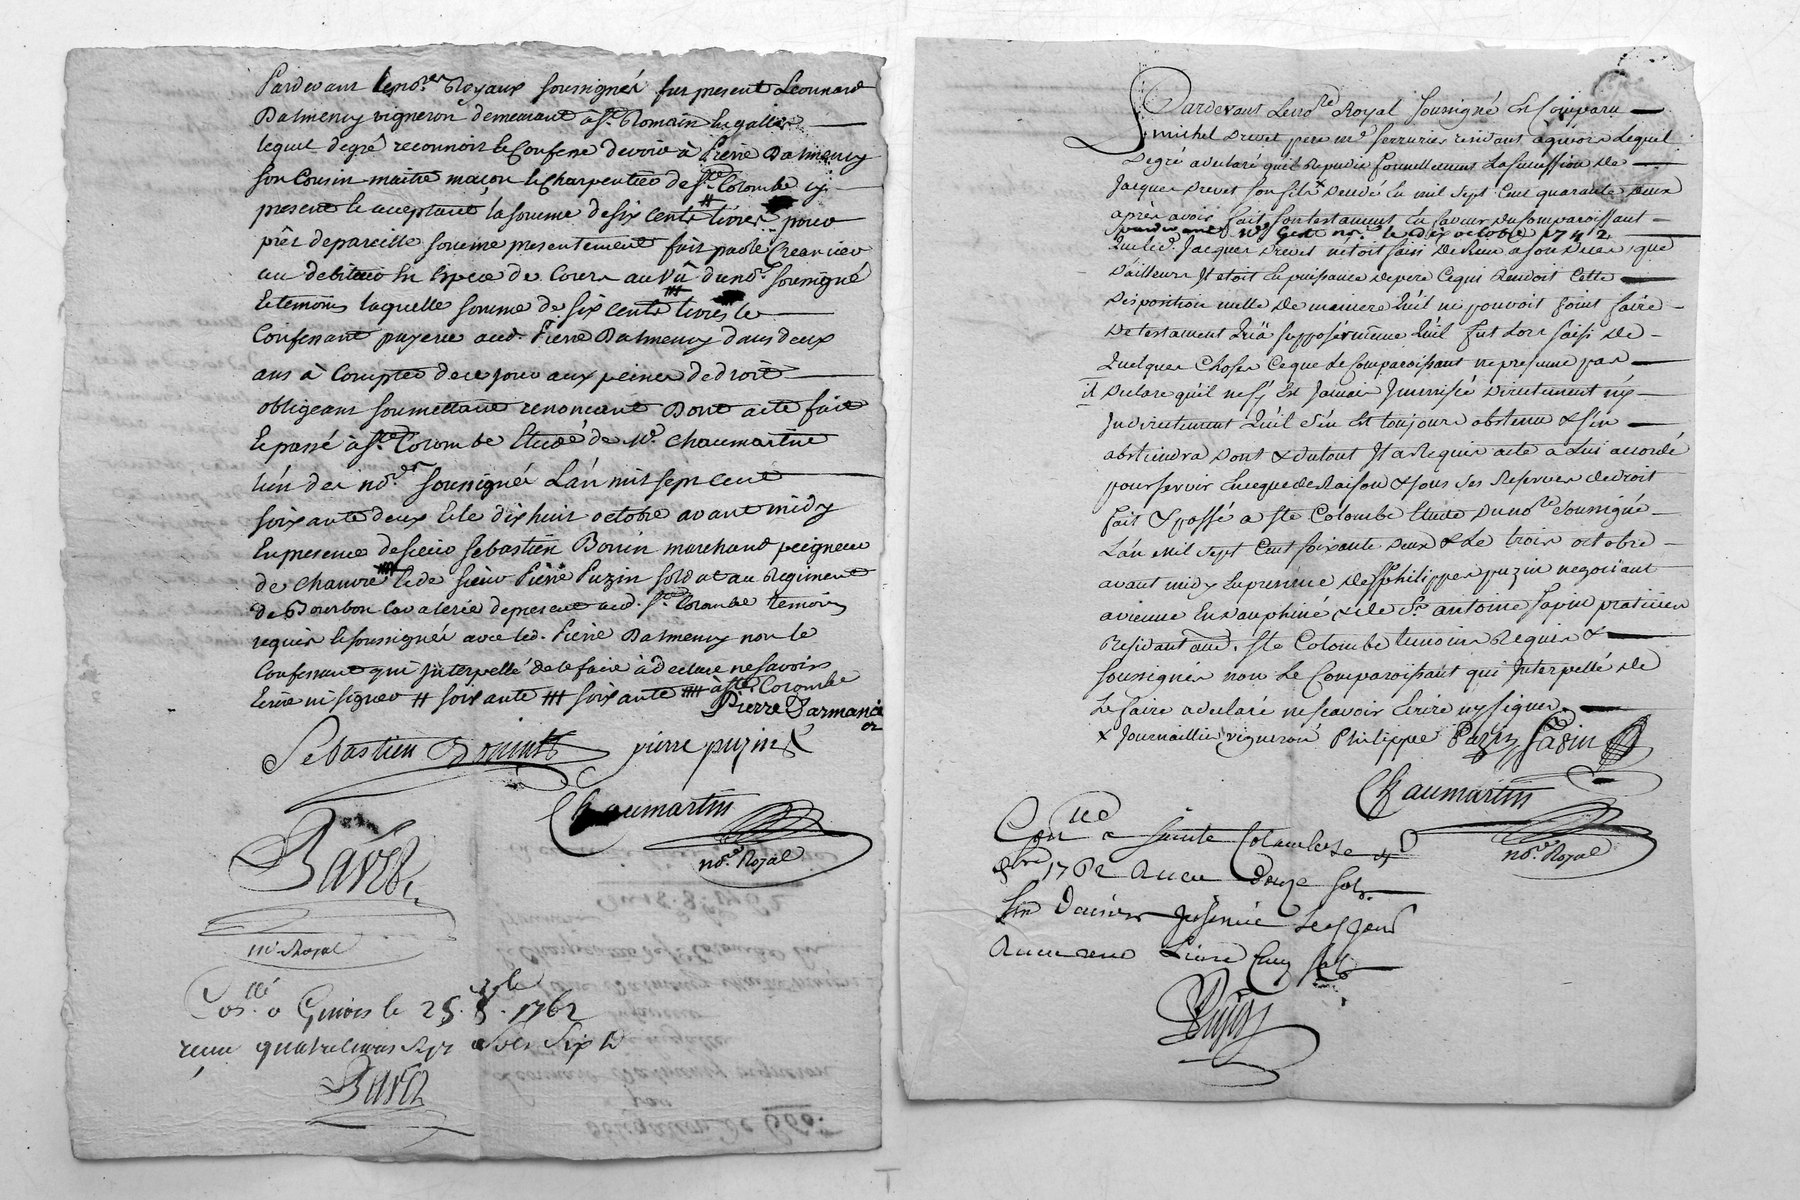 Pardevant les no.res Royaux soussignés fut present Leonnard
Dalmency vigneron demeurant à st. Romain En gallier
lequel degré reconnoit & Confesse devoir à Pierre Dalmency
son Cousin maitre maçon & Charpentier de ste. Colombe icy
present & acceptant la somme de six cents # livres pour
prêt de pareille somme presentement fait par led. Creancier
au debiteur En Espece de Cours au vû du no.re soussigné
& temoins laquelle somme de six cents ## livres le
Confessant payera aud. Pierre Dalmency dans deux
ans à Compter de ce jour aux peines de droit
obligeant soumettant renonceant Dont acte fait
& passé à ste. Colombe Etude de Me. Chaumartin
l'un des no.res soussignés L'an mil sept cent
soixante deux & le dix huit octobre avant midy
En presence de sieur Sebastien Bonin marchand peigneur
de chanvre ### & de sieur Pierre Puzin soldat au Regiment
de Bourbon Cavalerie de present aud. ste. Colombe temoins
requis & soussignés avec led. Pierre Dalmency non le
Confessant qui Interpellé de le faire à declaré ne savoir
Ecrire ni signer # soixante ## soixante ### à ste. Colombe
Pierre Darmancié
Sebastien Bonin pierre puzin
Chaumartin
no.re Royal
Bávet
no. Royal
Con.llé a Givors le 25. 8.bre 1762
reçu quatre livres sept sols six d
Bavet
obligation de 660.tt
par
Leonnard Dalmency vigneron
Du 18. 8.bre 1762
Pardevant Le no.re Royal soussigné Est Comparu
michel Drevet pere m.d serrurier residant a givors Lequel
Degré a declaré quil Repudie formellement La succession de
Jacques Drevet son fils x Decedé En mil sept Cent quarante deux
après avoir fait son testament En faveur du Comparoissant
pardevant Me. no.re le dix octobre 1742
Que led. Jacques Drevet n'etoit saisi de Rien a son deces que
D'ailleurs Il etoit En puissance de pere Ce qui Rendoit Cette
Disposition nulle De maniere Quil ne pouvoit point faire
De testament Qu'a supposer même Quil fut Lors saisi de
Quelques Choses Ce que Le Comparoissant ne presume pas
il Declare qu'il ne s'y Est Jamais Immiscé Directement ny
Indirectement Qu'il s'en Est toujours abstenu & s'en
abstiendra Dont & du tout Il a Requis acte a Lui accordé
pour servir En ce que de Raison & sous ses Reserves de droit
fait & passé a Ste Colombe Etude Du no.re soussigné
L'an Mil Sept Cent soixante Deux & Le trois octobre
avant midy En presence de sr. philippe puzin negociant
a vienne En Dauphiné & de Sr. antoine fapin praticien
Residant aud. Ste Colombe temoins Requis &
soussignés non Le Comparoissant qui Interpellé de
Le faire a declaré ne scavoir Ecrire ny signer
x Journaillier vigneron Philippe Puzin
Chaumartin
no.re Royal
Con.llé a Sainte Colombe
8bre 1762 Reçu Douze sols